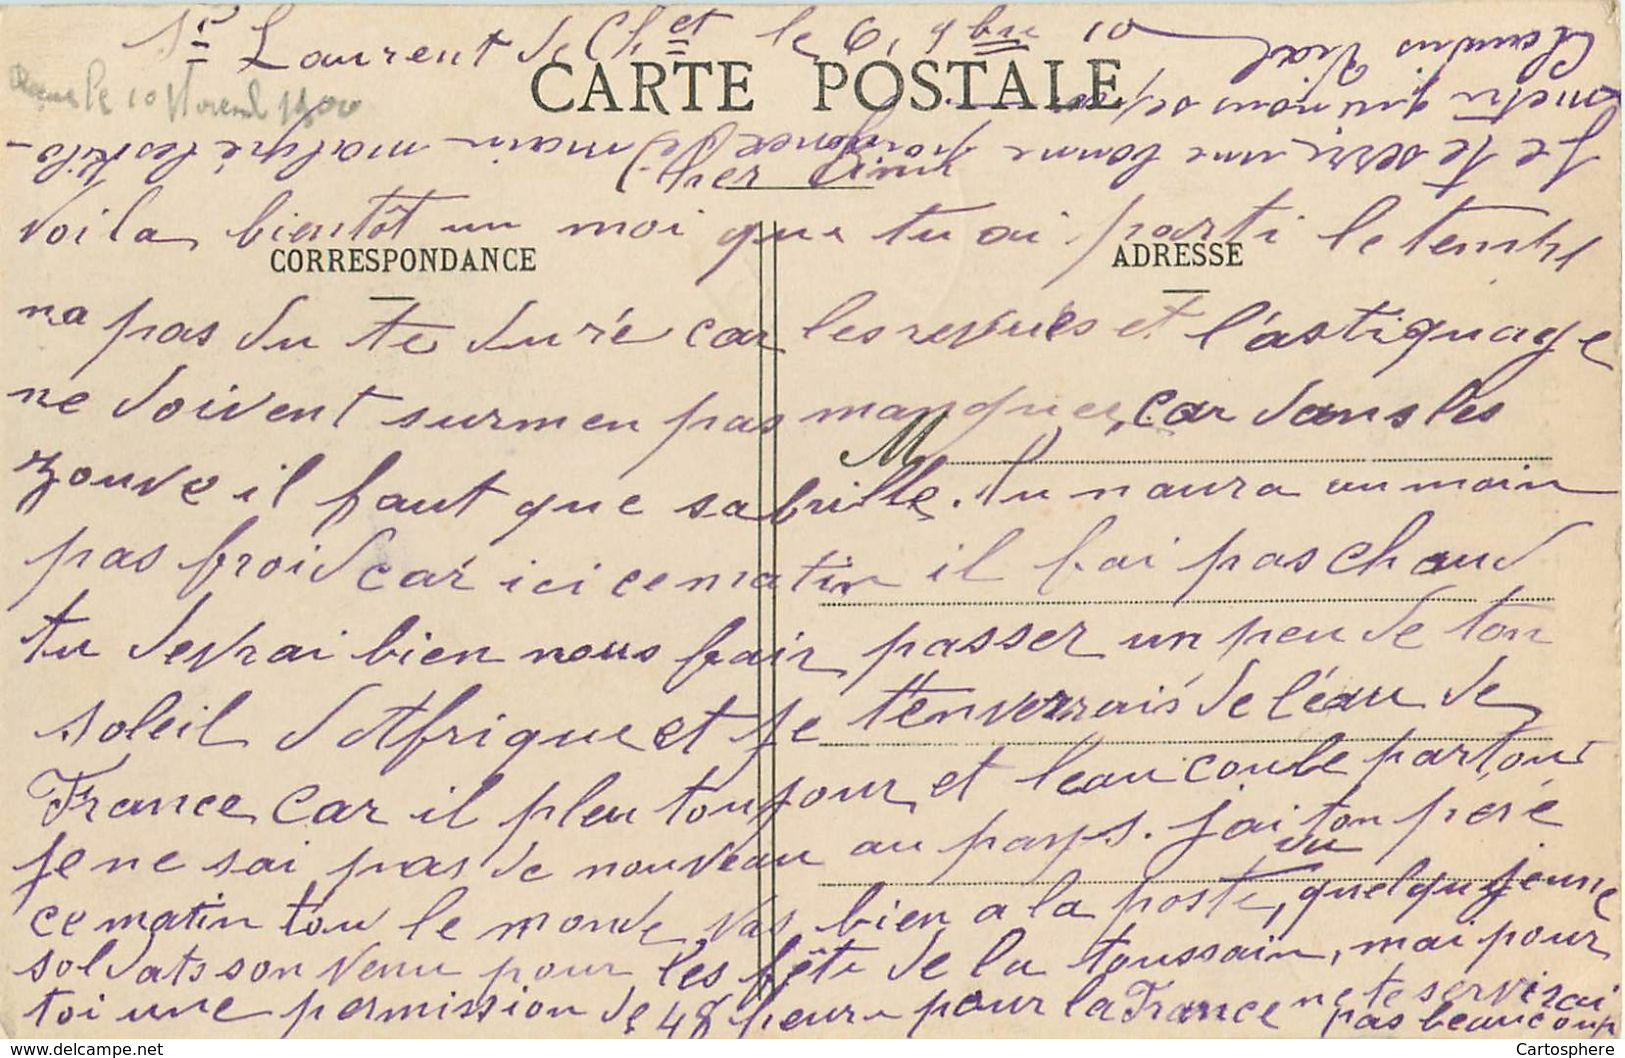 St Laurent de Ch.et le 6, 9bre 10
CARTE POSTALE
le 10
Cher Ami
Voila bientôt un moi que tu ai parti le temps
CORRESPONDANCE
ADRESSE
na pas du te duré car les revues et l'astiquage
ne doivent surmen pas manquer, car dans les
M
zouve il faut que sa brille. Tu naura au moin
pas froid car ici ce matin il fai pas chaud
tu devrai bien nous fair passer un peu de ton
soleil d'Afrique et je t'enverrais de l'eau de
France car il pleu toujour et l'eau coule partout
je ne sai pas de nouveau au pays. j'ai vu ton père
ce matin tou le monde vas bien a la poste, quelqu jeune
soldats son venu pour les fête de la toussain, mai pour
toi une permission de 48 heure pour la France ne te servirai
pas beaucoup
Je te serre une bonne poignée de main malgré les kilo-
metre qui nous
Claudius Vial
Cartosphere